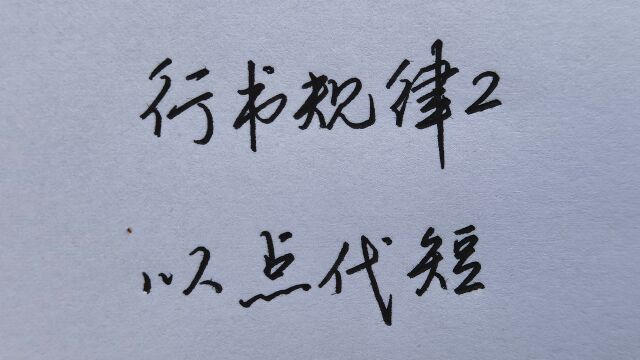 行书规律2
以点代短